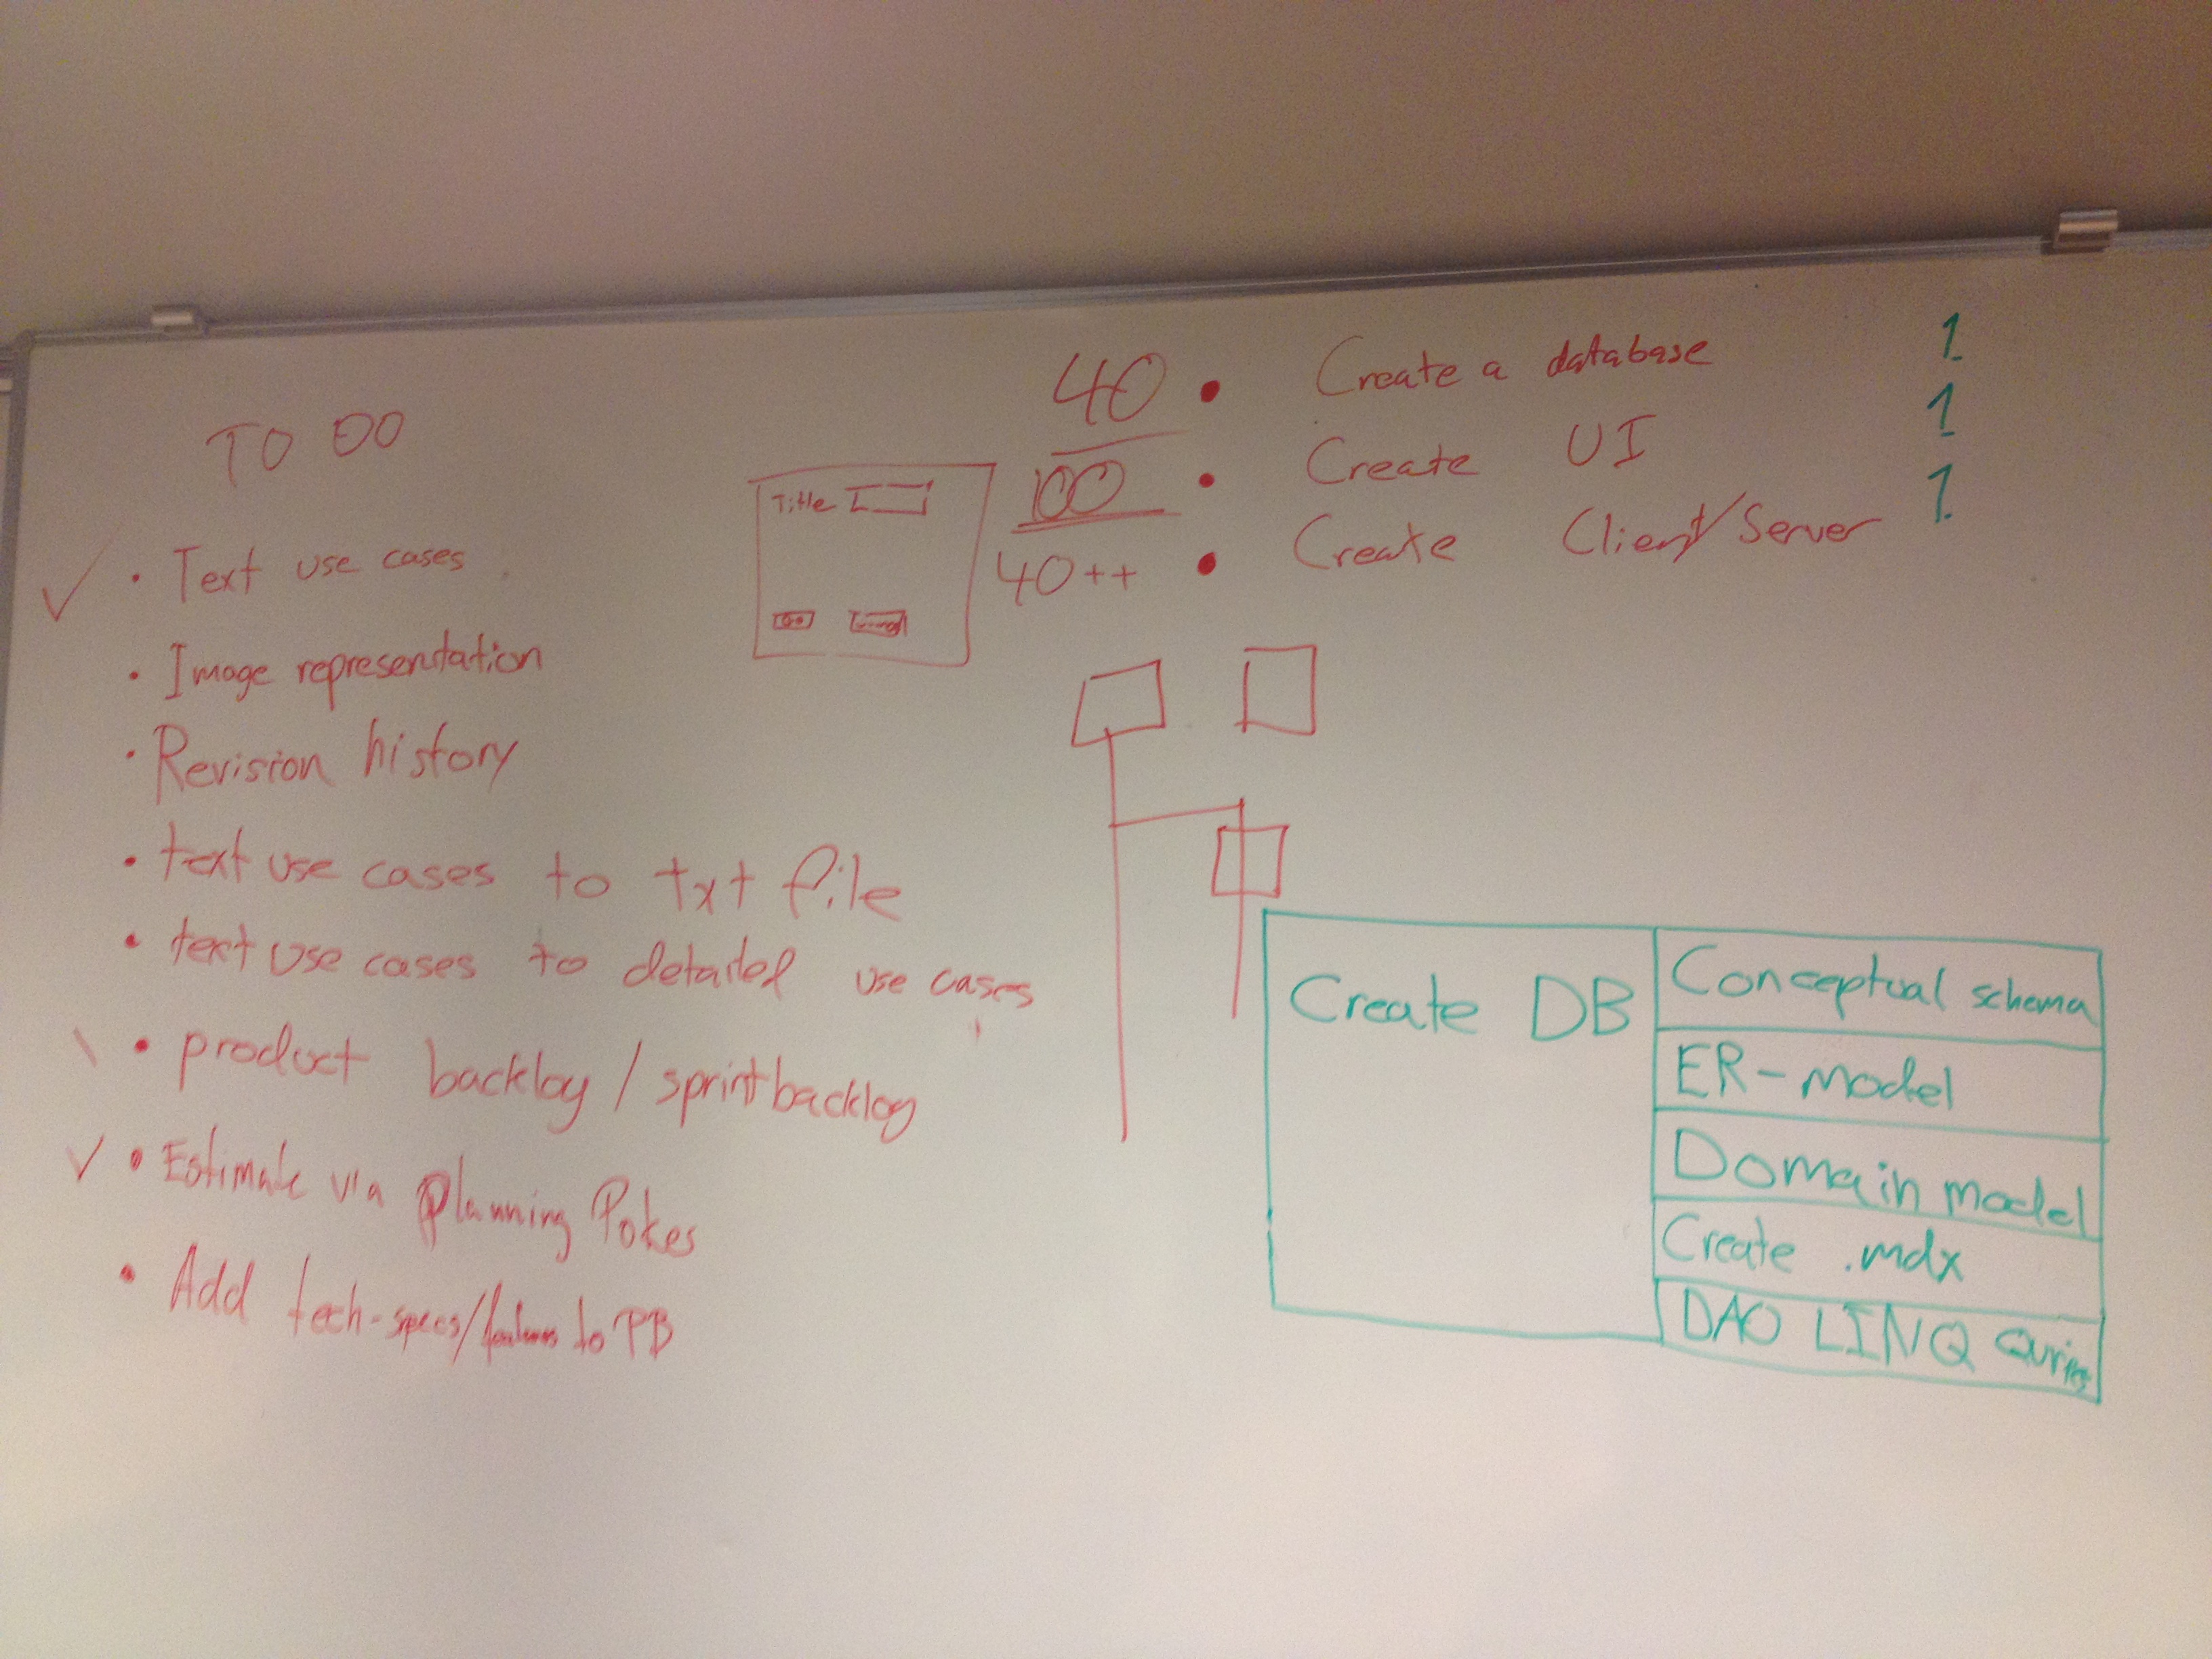 TO DO
✓ • Text use cases
• Image representation
• Revision history
• text use cases to txt file
• text use cases to detailed use cases
\ • product backlog / sprintbacklog
✓ • Estimate via planning Pokes
• Add tech-specs/ to PB
Title
40 • Create a database 1
100 • Create UI 1
40++ • Create Client/Server 1
Create DB
Conceptual schema
ER-model
Domain model
Create .mdx
DAO LINQ